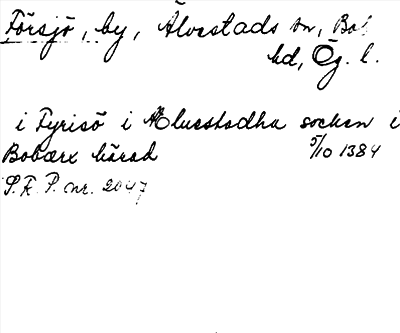 Försjö, by, Älvestads sn, Bo
hd, Ög. l.
i Fyrisö i Æluestadha socken i
Bobærx hårad 5/10 1384
S.R.P. nr. 2047